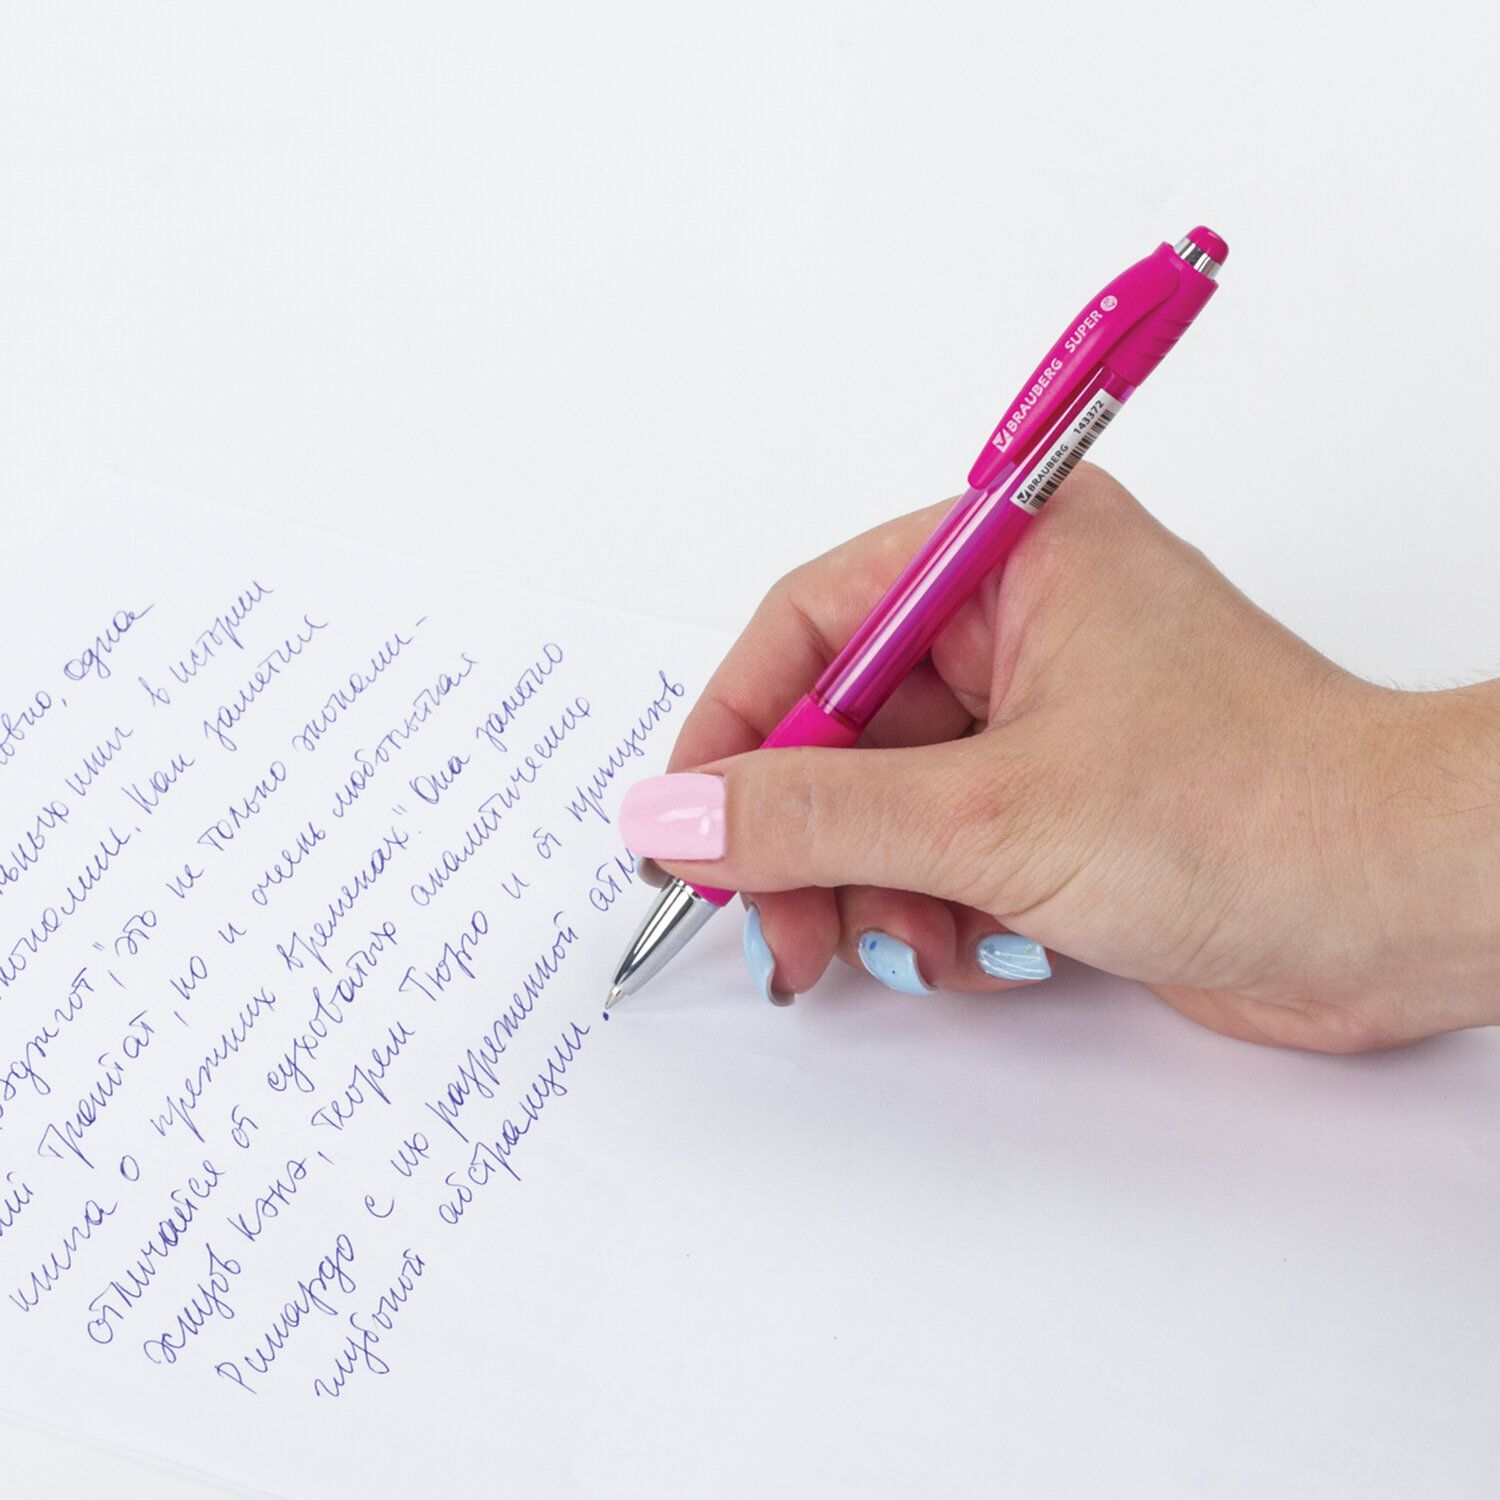 одна
книг в истории
экономии. Как заметил
"это не только экономи-
Трактат, но и очень любопытная
книга о прежних временах". Она заметно
отличается от суховатых аналитических
эжизов Кэнэ, теорем Тюрго и от принципов
Рикардо с их разреженной атм
глубокой абстракции.
BRAUBERG SUPER
BRAUBERG 143372